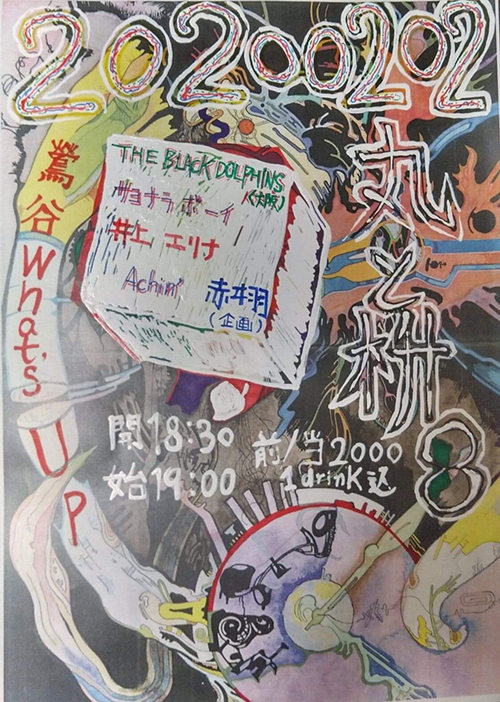 20200202
丸と枡8
鶯谷What's UP
THE BLACK DOLPHINS
(大阪)
サヨナラボーイ
井上 エリナ
Achim
赤栩
(企画)
開18:30 前/当2000
始19:00 1drinK込